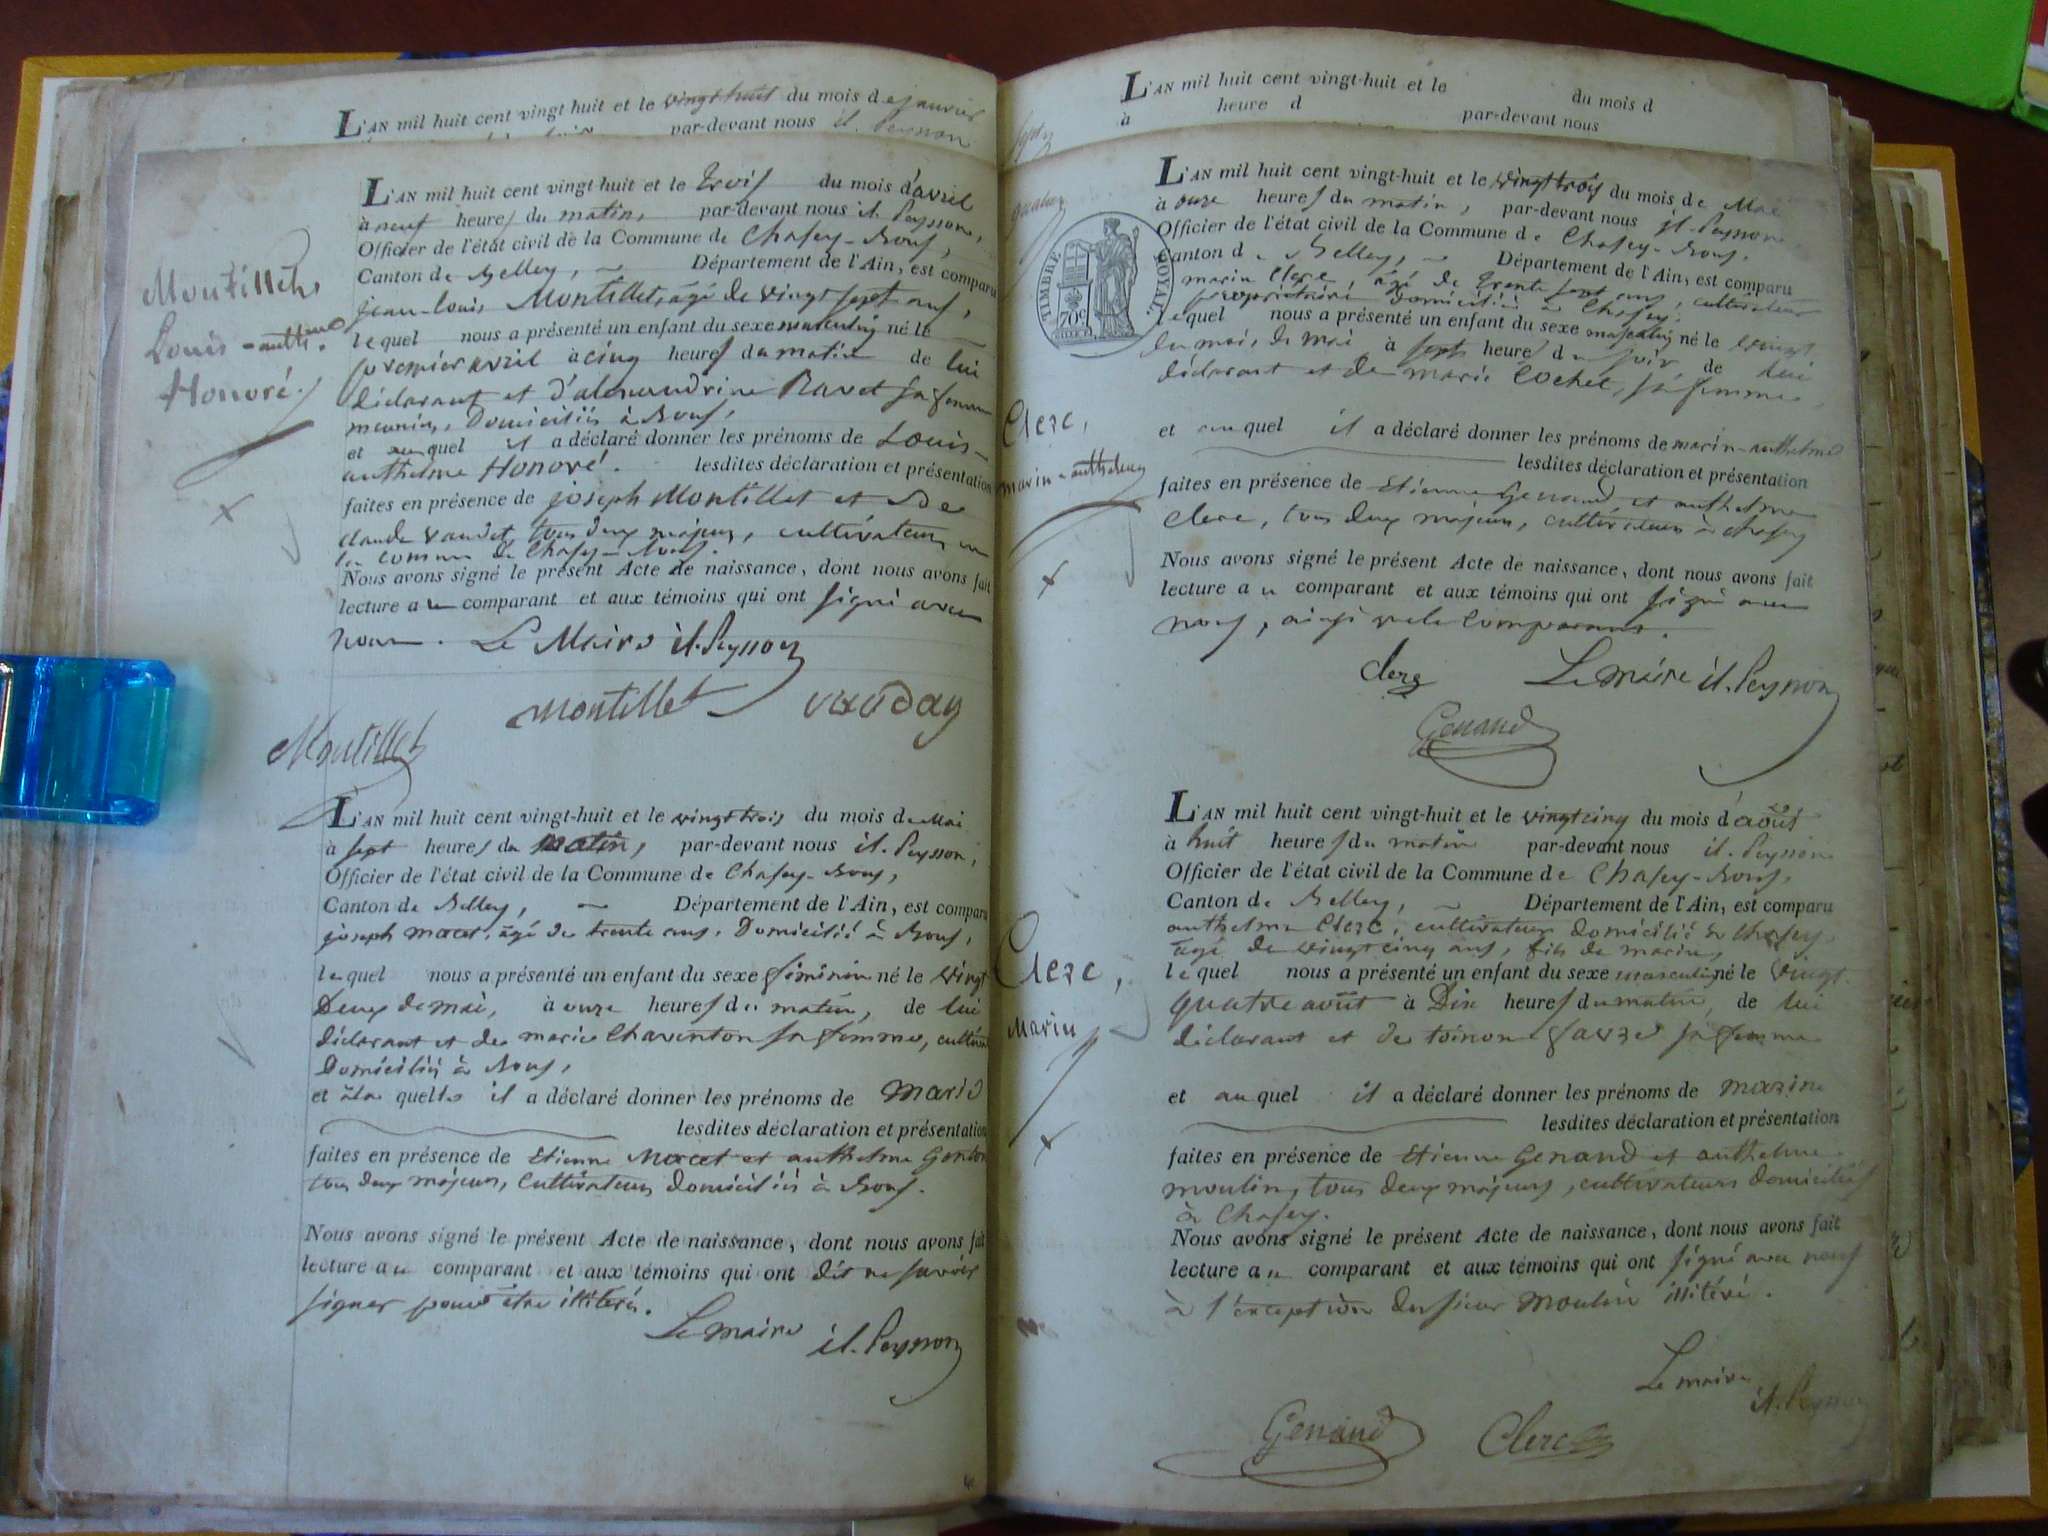 L'AN mil huit cent vingt huit et le vingt huit du mois de janvier
par-devant nous il. Peysson
L'AN mil huit cent vingt-huit et le trois du mois d'avril
à neuf heures du matin, par-devant nous il. Peysson,
Officier de l'état civil de la Commune de Chasey-Bons,
Canton de Belley, Département de l'Ain, est comparu
jean-louis Montillet, âgé de vingt sept ans,
lequel nous a présenté un enfant du sexe masculin né le
premier avril à cinq heures du matin de lui
déclarant et d'alexandrine Ravet sa femme
meunier, Domiciliés à Bons,
et auquel il a déclaré donner les prénoms de Louis-
anthelme Honoré. lesdites déclaration et présentation
faites en présence de joseph Montillet et de
claude vaudet, tous deux majeurs, cultivateurs en
la commune de Chasey-Bons.
Nous avons signé le présent Acte de naissance, dont nous avons fait
lecture au comparant et aux témoins qui ont signé avec
nous. Le Maire il. Peysson
Montillet vauday
Montillet
Montillet,
Louis-anthme
Honoré.
L'AN mil huit cent vingt-huit et le vingt trois du mois de Mai
à sept heures du matin, par-devant nous il. Peysson,
Officier de l'état civil de la Commune de Chasey-Bons,
Canton de Belley, Département de l'Ain, est comparu
joseph macet, âgé de trente ans, Domicilié à Bons,
lequel nous a présenté un enfant du sexe féminin né le vingt
Deux de mai, à onze heures du matin, de lui
déclarant et de marie Chaventon sa femme,
Domiciliés à Bons,
et à la quelle il a déclaré donner les prénoms de marie
lesdites déclaration et présentation
faites en présence de Etienne Macet et anthelme
tous deux majeurs, Cultivateurs domiciliés à Bons.
Nous avons signé le présent Acte de naissance, dont nous avons fait
lecture au comparant et aux témoins qui ont dit ne savoir
signer pour être illitérés.
Le maire il. Peysson
L'AN mil huit cent vingt-huit et le du mois d
à heure d par-devant nous
TIMBRE ROYAL
70c
L'AN mil huit cent vingt-huit et le vingt trois du mois de Mai
à onze heures du matin, par-devant nous il. Peysson
Officier de l'état civil de la Commune de Chasey-Bons.
Canton de Belley, Département de l'Ain, est comparu
marin Clerc âgé de trente sept ans, cultivateur
propriétaire Domicilié à Chasey.
lequel nous a présenté un enfant du sexe masculin né le vingt
du mois de mai à sept heures du soir, de lui
déclarant et de marie Cochet, sa femme,
et auquel il a déclaré donner les prénoms de marin-anthelme
lesdites déclaration et présentation
faites en présence de Etienne Genand et anthelme
Clerc, tous deux majeurs, cultivateurs à chasey
Nous avons signé le présent Acte de naissance, dont nous avons fait
lecture au comparant et aux témoins qui ont signé avec
nous, ainsi que le Comparant.
Clerc Le maire il. Peysson
Genand
Clerc,
marin-anthelme
L'AN mil huit cent vingt-huit et le vingt cinq du mois d'août
à huit heures du matin par-devant nous il. Peysson
Officier de l'état civil de la Commune de Chasey-Bons.
Canton de Belley, Département de l'Ain, est comparu
anthelme Clerc, cultivateur domicilié à Chasey,
âgé de vingt cinq ans, fils de marin,
lequel nous a présenté un enfant du sexe masculin né le vingt
quatre août à Dix heures du matin, de lui
déclarant et de toinon favre sa femme
et auquel il a déclaré donner les prénoms de marin
lesdites déclaration et présentation
faites en présence de Etienne Genand et anthelme
moulin, tous deux majeurs, cultivateurs domiciliés
à Chasey.
Nous avons signé le présent Acte de naissance, dont nous avons fait
lecture au comparant et aux témoins qui ont signé avec nous
à l'exception du sieur Moulin illitéré.
Le maire
il. Peysson
Genand Clerc
Clerc,
Marin